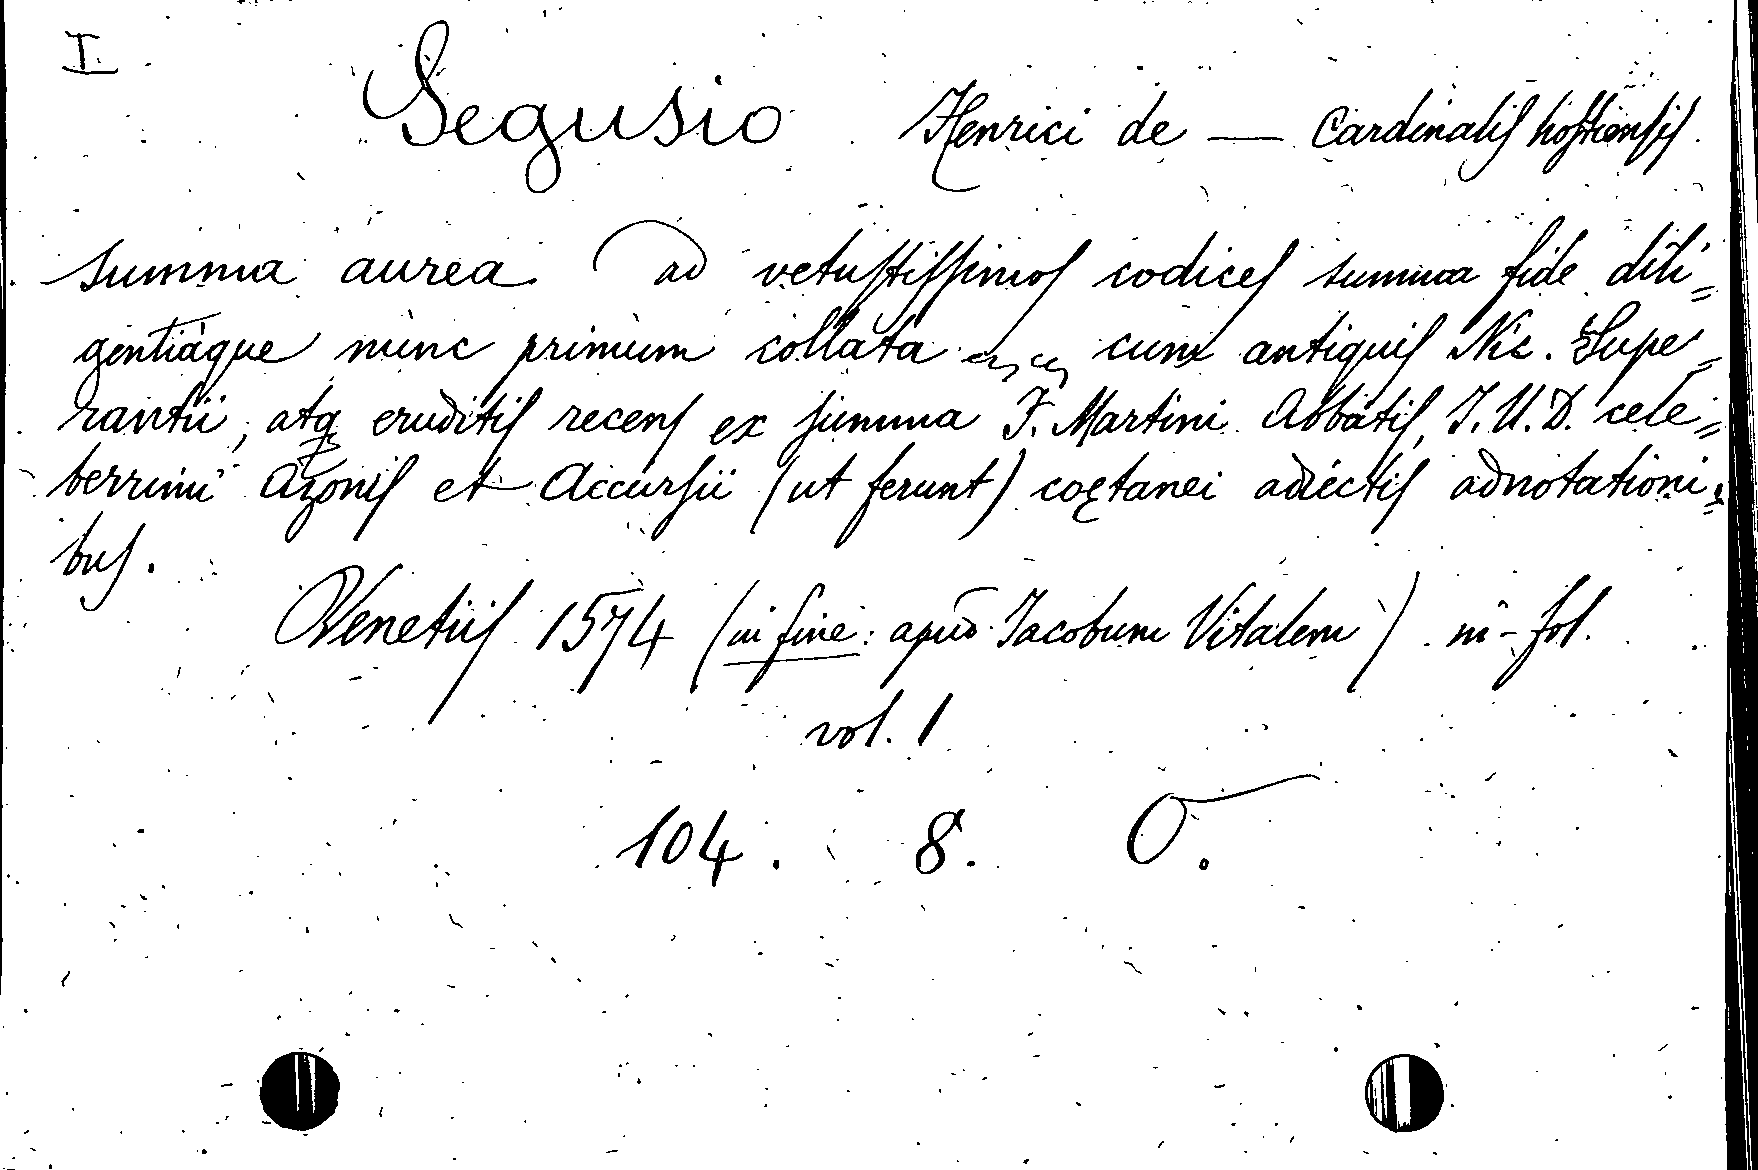 I.
Segusio Henrici de — Cardinalis hostiensis.
summa aurea ad vetustissimos codices summa fide dili=
gentiaque nunc primum collata ~~ cum antiquis Nic. Supe=
rantii, atq eruditis recens ex summa F. Martini Abbatis, I. U. D. cele=
berrimi Azonis et Accursii (ut ferunt) coętanei adiectis adnotationi=
bus.
Venetiis 1574 (in fine: apud Iacobum Vitalem) in-fol.
vol. 1
104. 8. O.